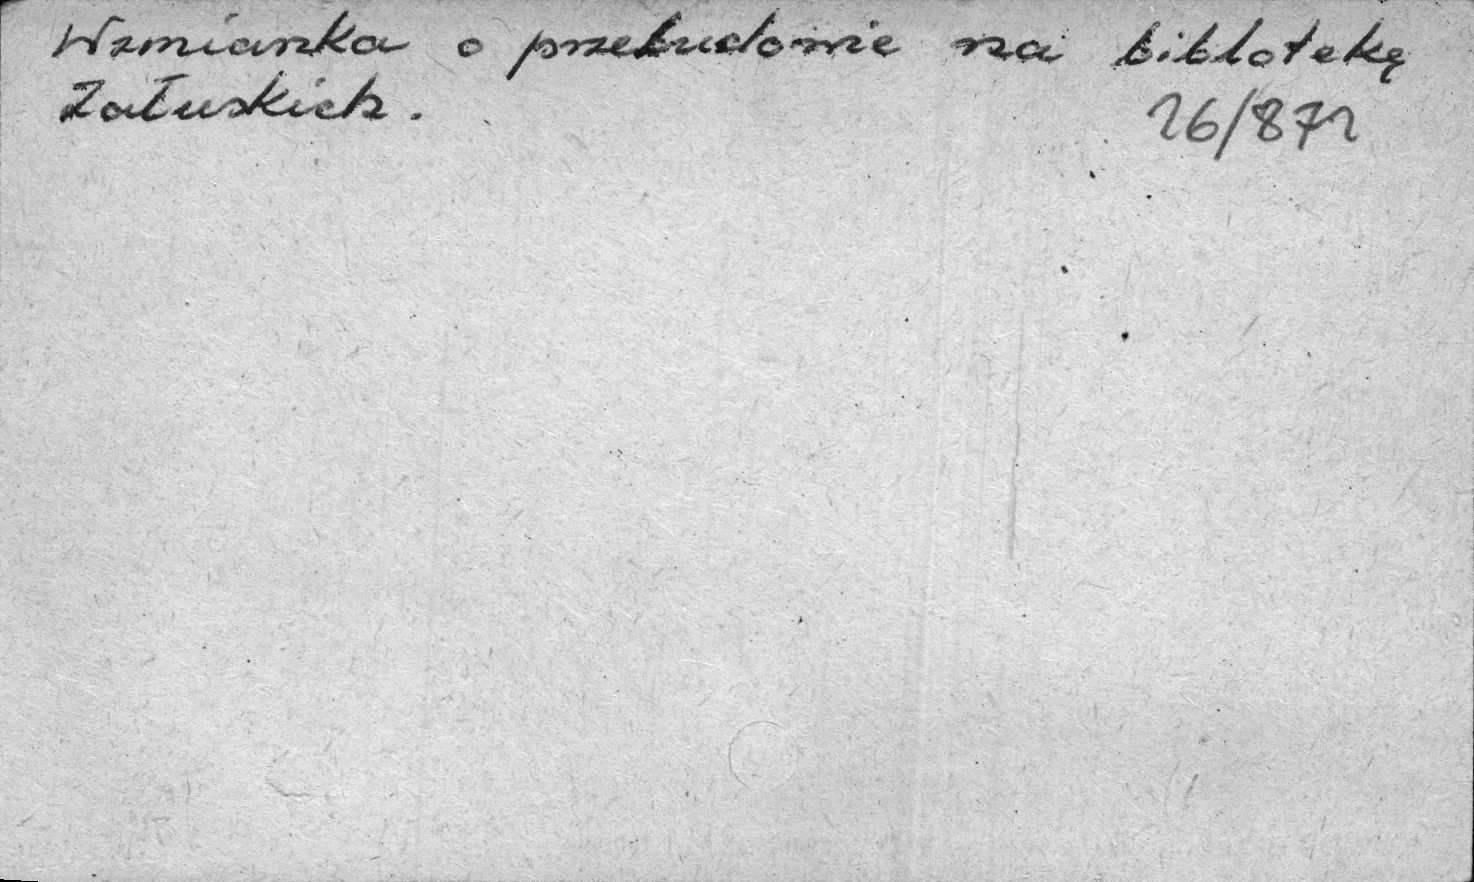 Wzmianka o przebudowie na biblotekę
Załuskich.
26/872